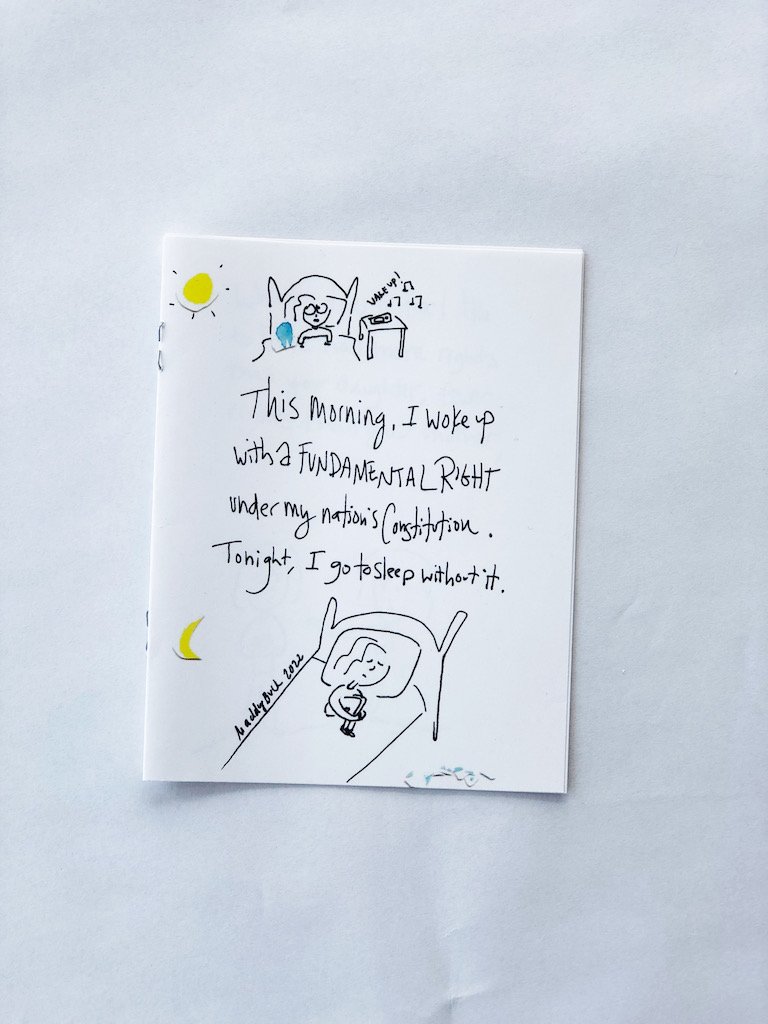 WAKE UP!
This Morning, I woke up
with a FUNDAMENTAL RIGHT
under my nation's Constitution.
Tonight, I go to sleep without it.
Maddy Buck 2022